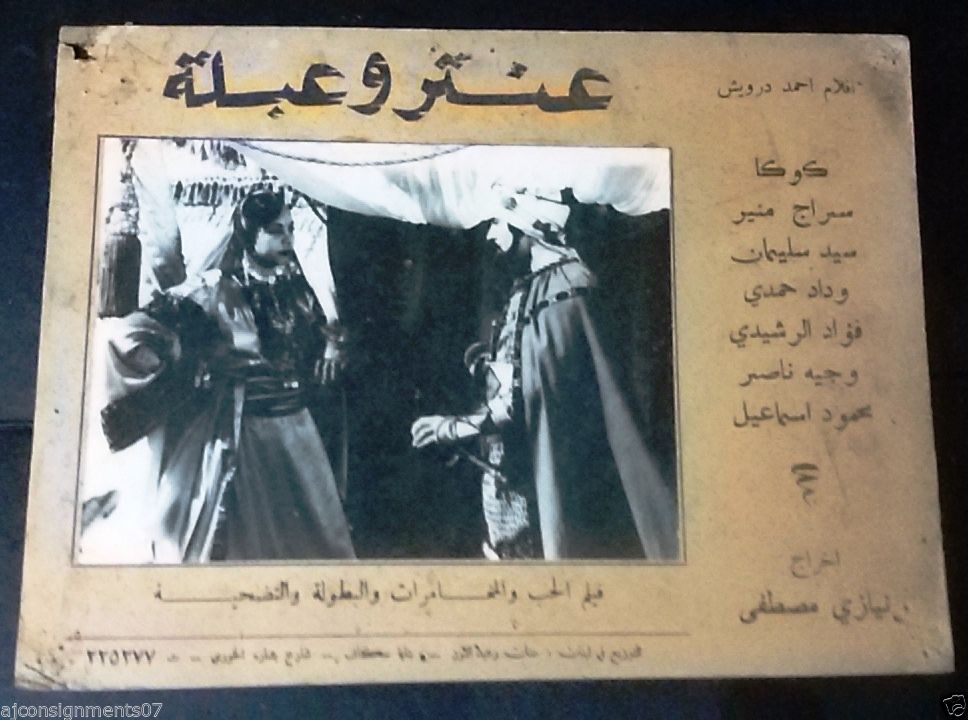 عنتر و عبلة
افلام احمد درويش
كوكا
سراج منير
سيد سليمان
وداد حمدي
فؤاد الرشيدي
وجيه ناصر
محمود اسماعيل
اخراج
نيازي مصطفى
فيلم الحب والمغامرات والبطولة والتضحية
التوزيع في لبنان : شارع بشاره الخوري - ت ٢٢٥٢٧٧
ajconsignments07